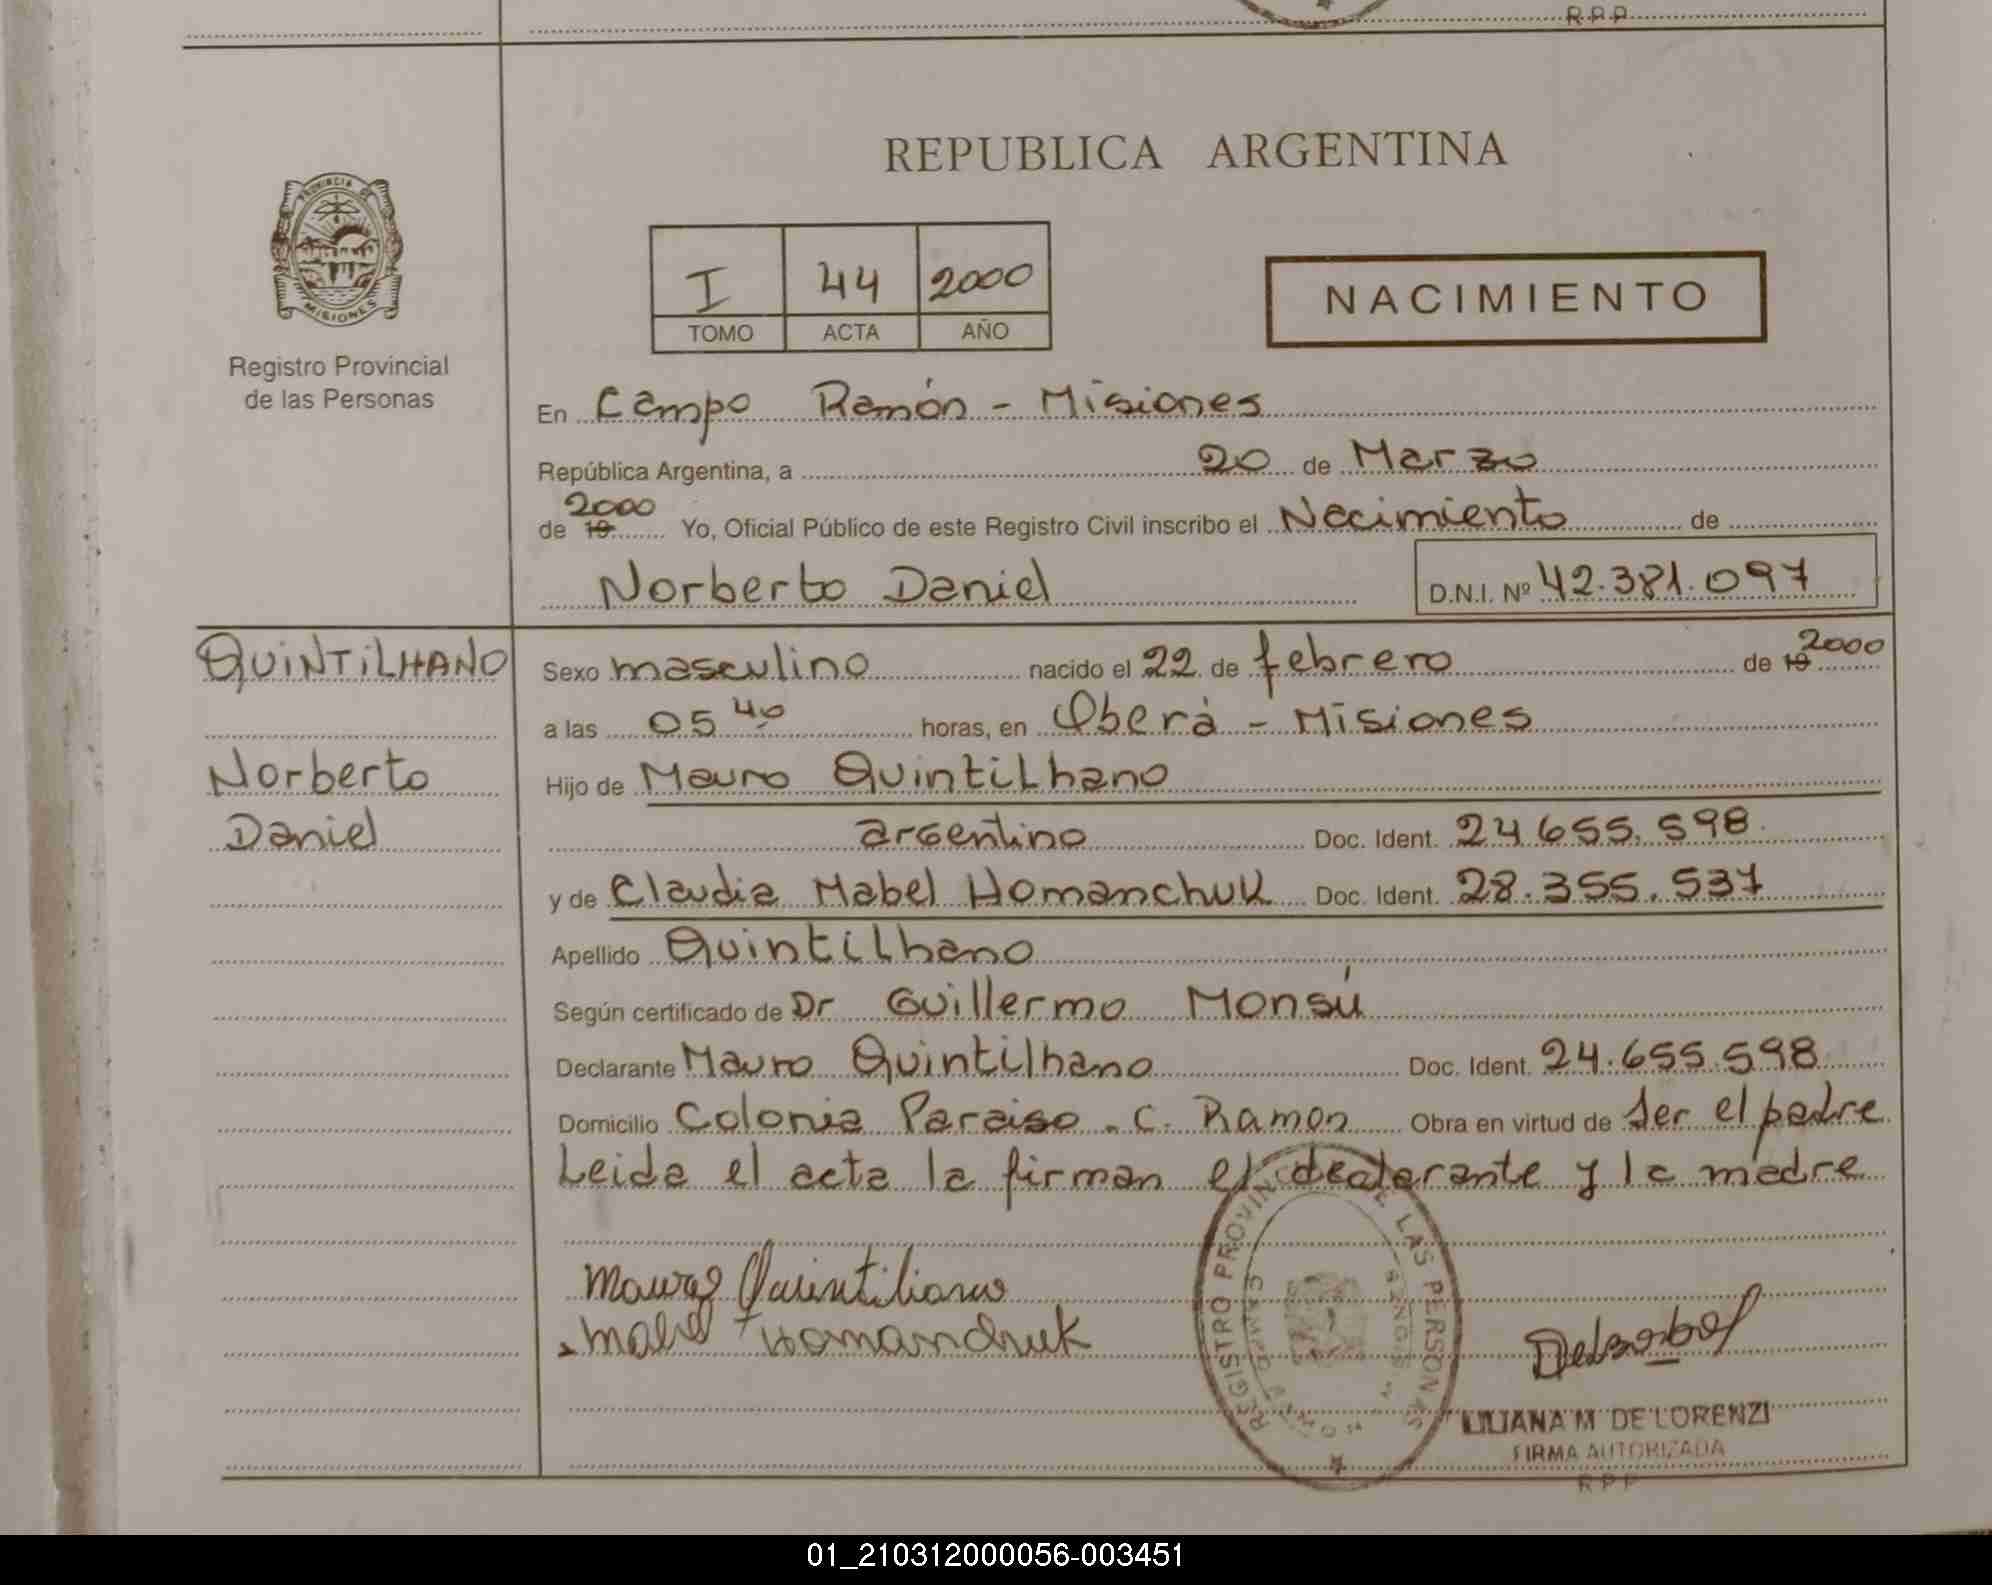 R P P
REPUBLICA ARGENTINA
PROVINCIA DE
MISIONES
Registro Provincial
de las Personas
I 44 2000
TOMO ACTA AÑO
NACIMIENTO
En Campo Ramón - Misiones
República Argentina, a 20 de Marzo
de 19 2000 Yo, Oficial Público de este Registro Civil inscribo el Nacimiento de
Norberto Daniel D.N.I. Nº 42.381.097
QUINTILHANO
Norberto
Daniel
Sexo masculino nacido el 22 de febrero de 19 2000
a las 05 40 horas, en Oberá - Misiones
Hijo de Mauro Quintilhano
argentino Doc. Ident. 24.655.598.
y de Claudia Mabel Homanchuk Doc. Ident. 28.355.537
Apellido Quintilhano
Según certificado de Dr Guillermo Monsú
Declarante Mauro Quintilhano Doc. Ident. 24.655.598
Domicilio Colonia Paraiso - C. Ramon Obra en virtud de Ser el padre
Leida el acta la firman el declarante y la madre
Mauro Quintiliano
Mabel Homanchuk
REGISTRO PROVINCIAL DE LAS PERSONAS
LILIANA M DE LORENZI
FIRMA AUTORIZADA
R P P
01_210312000056-003451